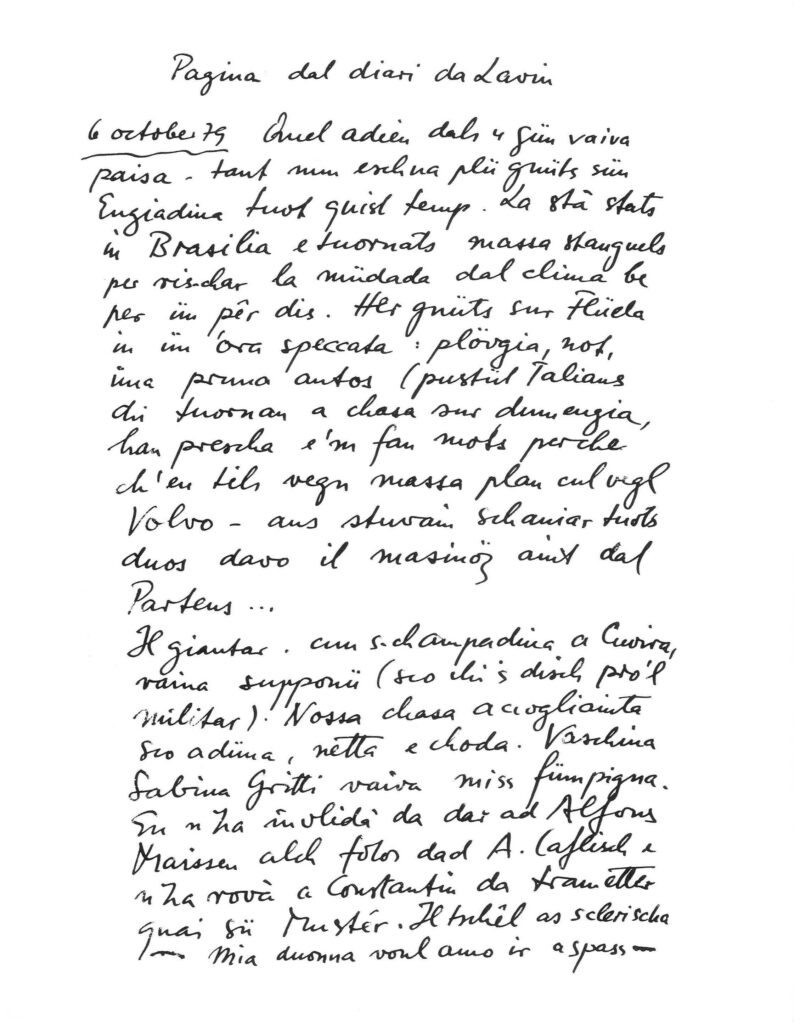 Pagina dal diari da Lavin
6 october 79 Quel adieu dals 4 gün vaiva
paisa - tant nun eschna plü gnüts sün
Engiadina tuot quist temp. La stà stats
in Brasilia e tuornats massa stanguels
per ris-char la müdada dal clima be
per ün pêr dis. Her gnüts sur Flüela
in ün' ora speccata: plövgia, not,
üna pruna autos (pustüt Talians
chi tuornan a chasa sur dumengia,
han prescha e'm fan mots perche
ch'eu tils vegn massa plan cul vegl
Volvo - ans stuvain schaniar tuots
duos davo il masinöz aint dal
Partens...
Il giantar. cun s-champadina a Cuoira,
vaina supponü (sco chi's disch pro'l
militar). Nossa chasa accogliainta
sco adüna, netta e choda. Vaschina
Sabina Gritti vaiva miss fö in pigna.
Eu n'ha invlidà da dar ad Alfons
Maissen alch fotos dad A. Caflisch e
n'ha rovà a Constantin da trametter
quai sü Mustér. Il tschêl as sclerischa
— Mia duonna voul amo ir a spass —